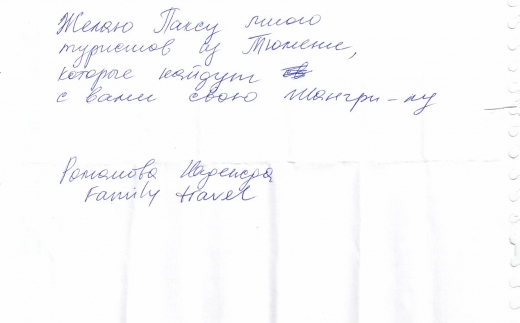 Желаю Паксу много
туристов из Тюмени,
которые найдут
с вами свою Шангри-лу
Романова Надежда
Family travel